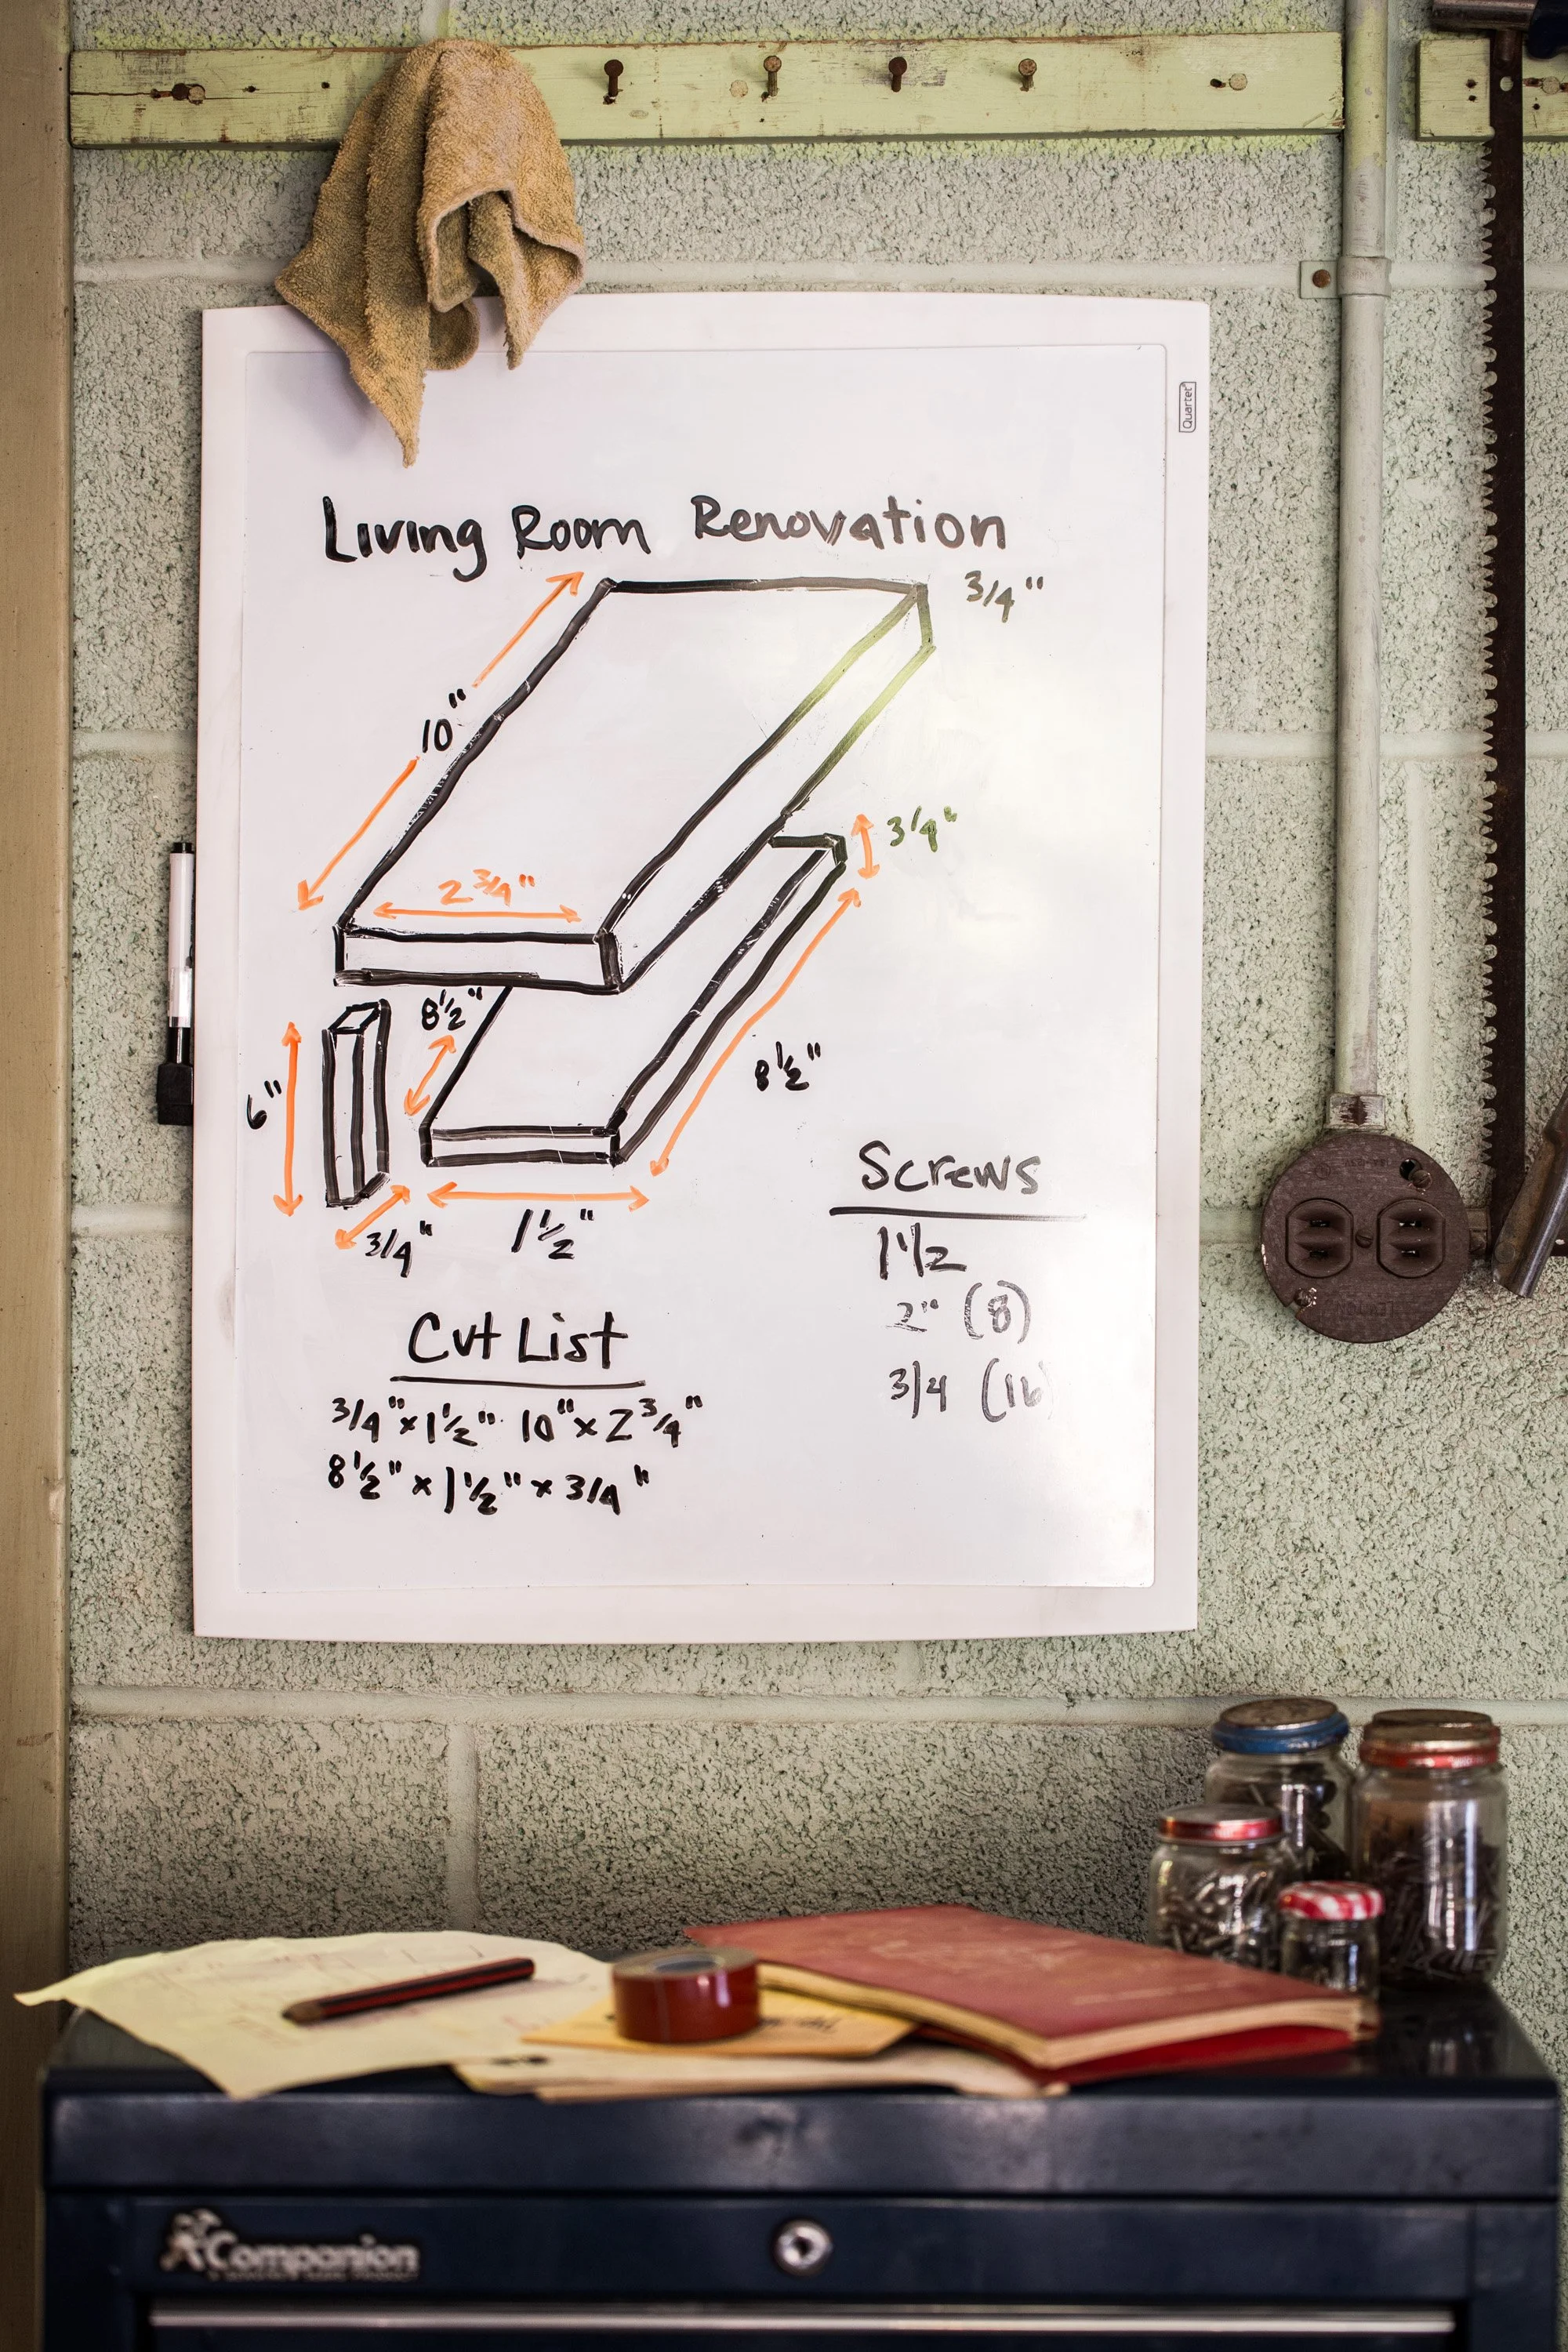 Quartet
Living Room Renovation
3/4"
10"
3/4"
2 3/4"
8 1/2"
6"
8 1/2"
3/4"
1 1/2"
Screws
1 1/2
2" (8)
3/4 (16
Cut List
3/4" x 1 1/2" 10" x 2 3/4"
8 1/2" x 1 1/2" x 3/4"
Companion